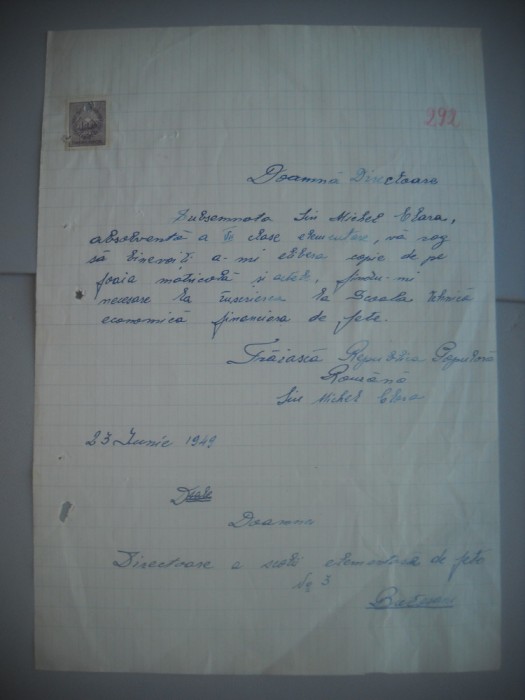 292
Doamnă Directoare
Subsemnata Lis Michel Clara,
absolventă a clase elementare, vă rog
să binevoiți a-mi elibera copie de pe
foaia matricolă și actele, fiindu-mi
necesare la înscrierea la Școala tehnică
economică financiara de fete.
Trăiască Republica Populară
Română
Michel Clara
23 Iunie 1949
Doamnei
Directoare a scolii elementară de fete
No 3